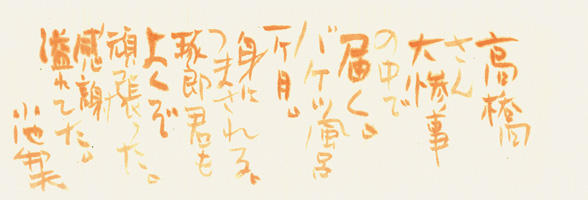 高橋
さん
大惨事
の中で
届く。
バケツ風呂
一ケ月。
身に
つまされる。
琢郎君も
よくぞ
頑張った。
感謝
溢れてた。
小池邦夫